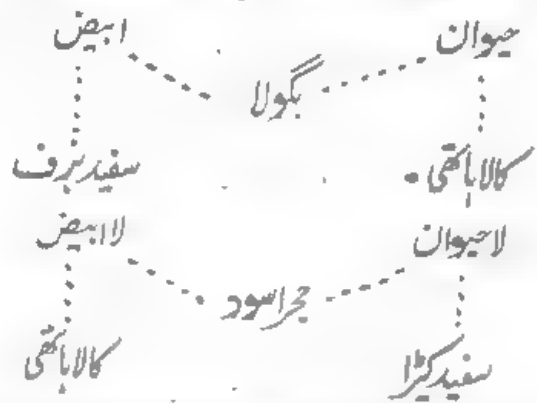 حیوان ابیض
بگولا
کالا ہاتھی سفید برف
لاحیوان لاابیض
حجر اسود
سفید کپڑا کالا ہاتھی